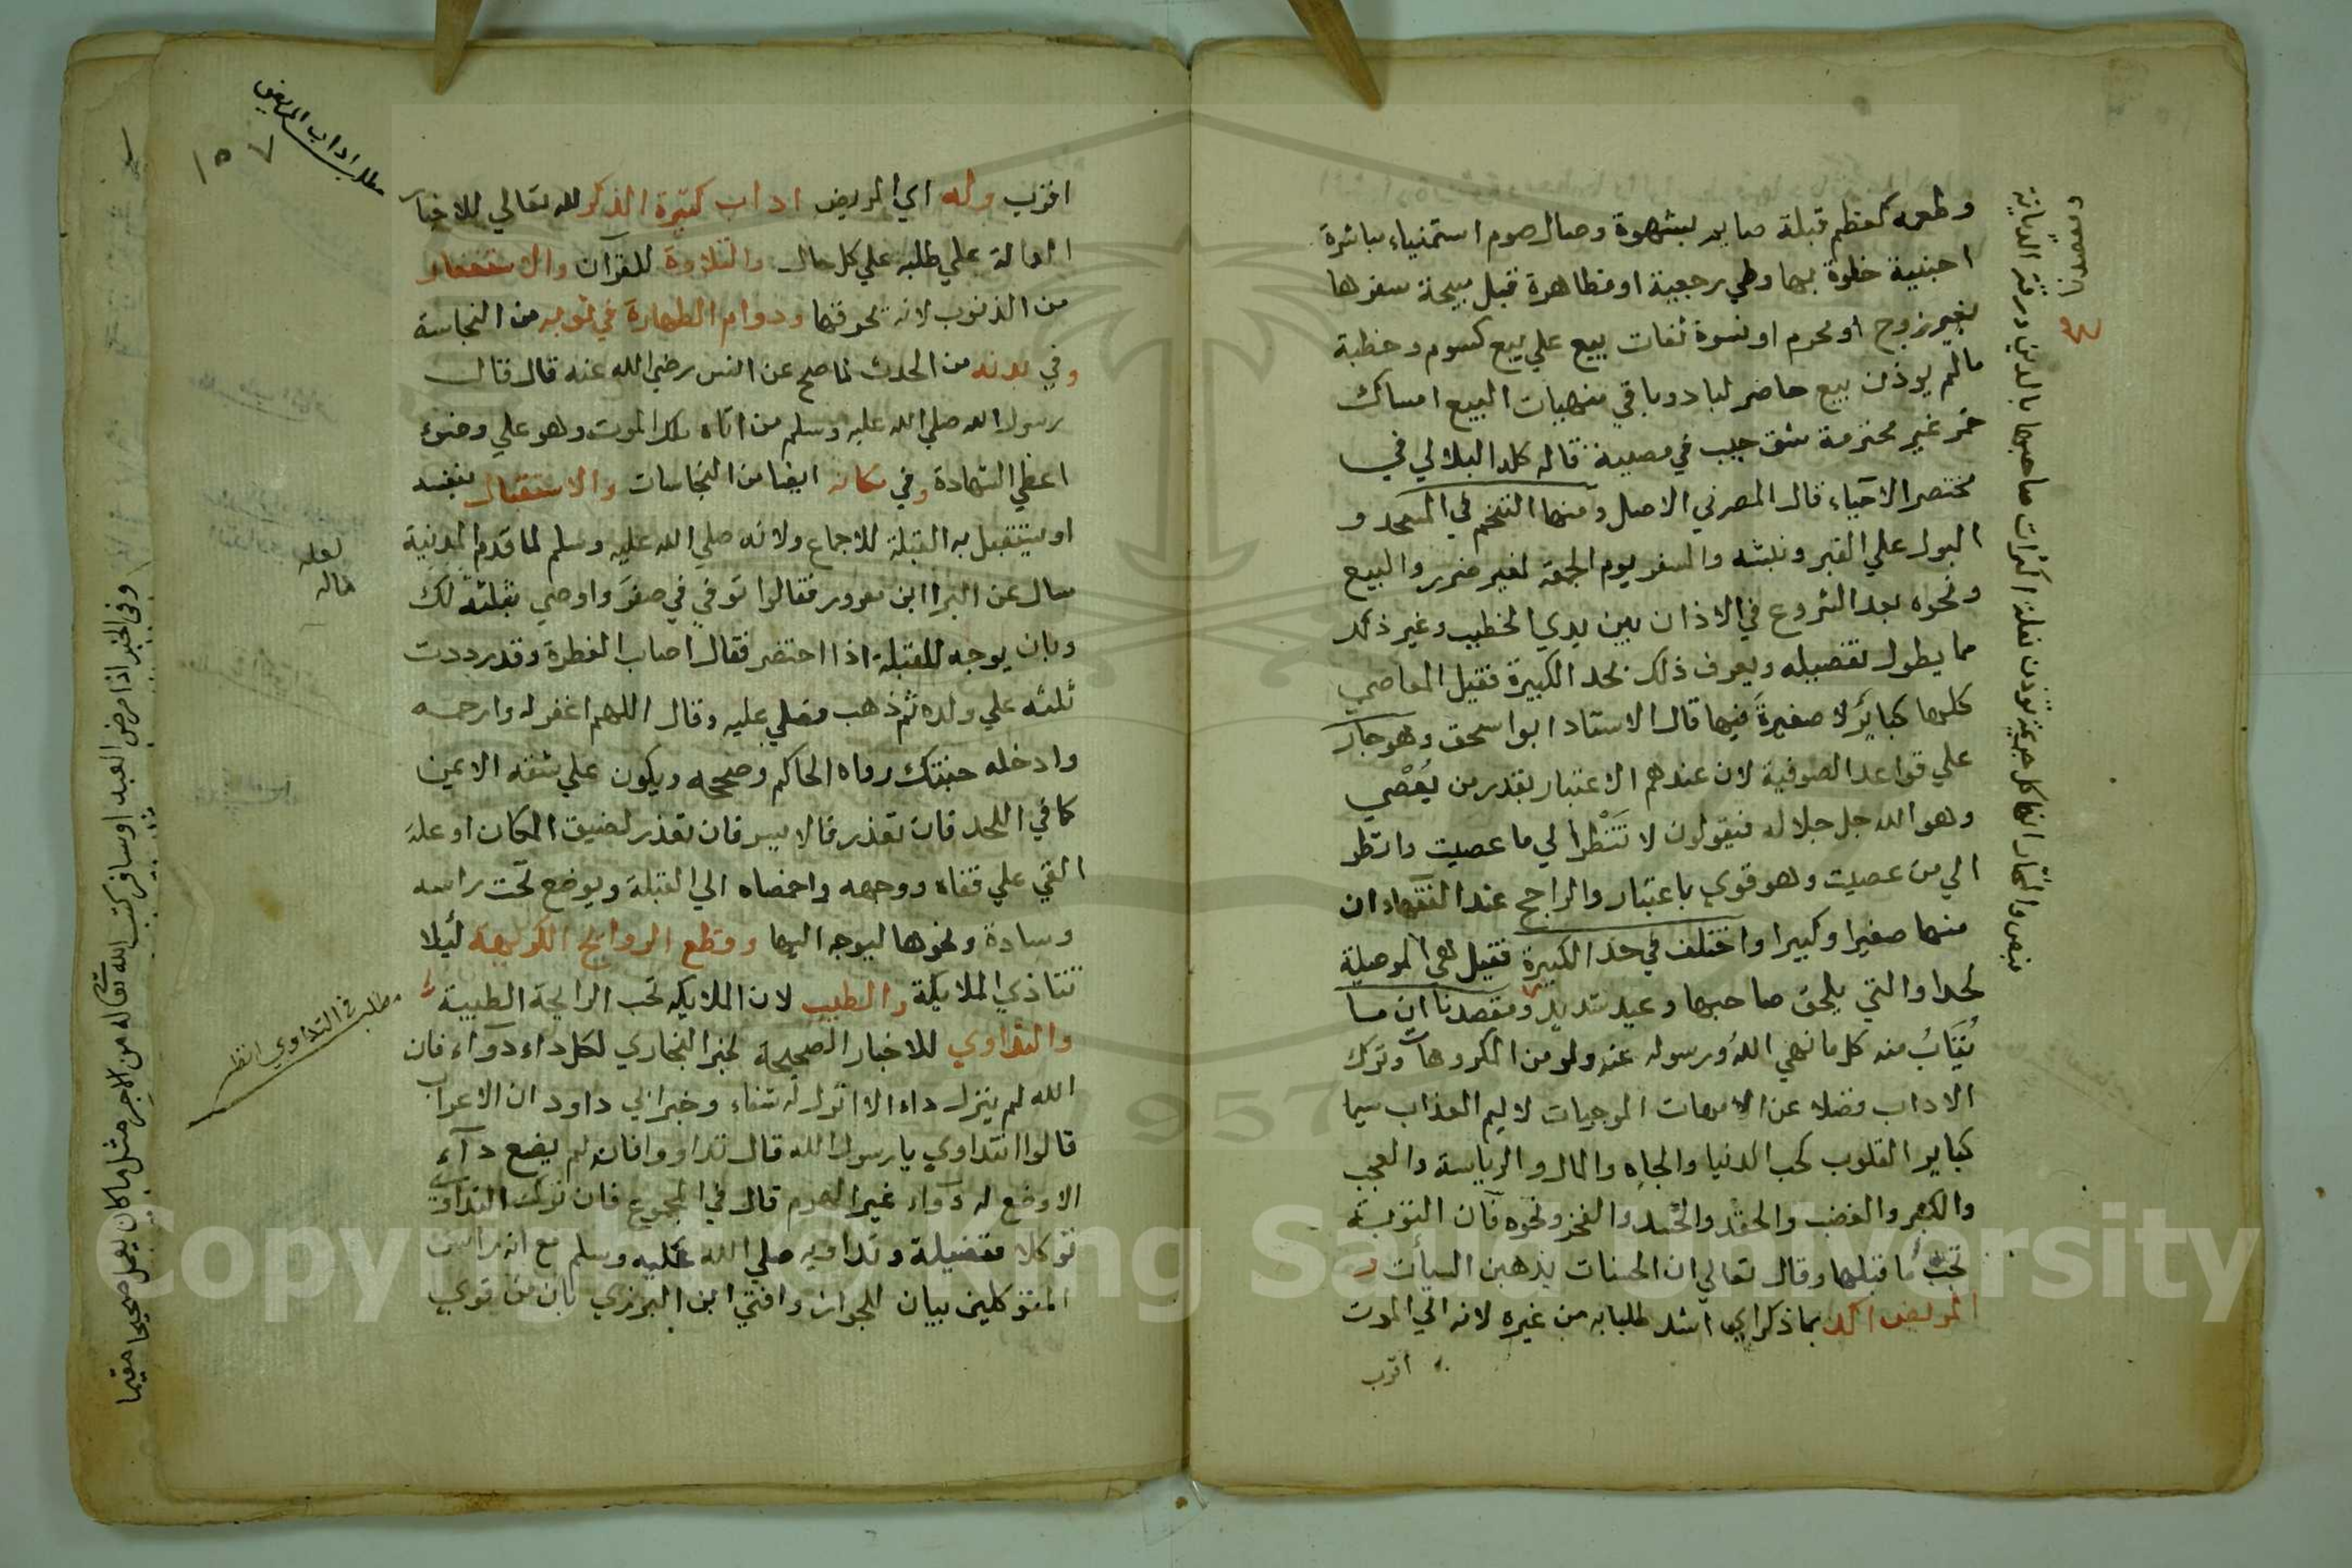 وطعمه كعظم قبلة صايم بشهوة وصال صوم استمناء مباشرة
اجنبية خلوة بها وطي رجعية او مظاهرة قبل بيحة سفرها
بغير زوج او محرم او نسوة ثقات بيع علي بيع كسوم وخطبة
مالم يوذن بيع حاضر لباد وباقي منهيات البيع امساك
خمر غير محترمة شق جيب في مصيبة قاله كله البلالي في
مختصر الاحياء قال المصر في الاصل ومنها التنخم في المسجد و
البول علي القبر ونبشه والسفر يوم الجمعة لغير ضرر والبيع
ونحوه بعد الشروع في الاذان بين يدي الخطيب وغير ذلك
مما يطول تفصيله ويعرف ذلك بحد الكبيرة فقيل المعاصي
كلها كبائر لا صغيرة فيها قال الاستاد ابو اسحق وهو جار
علي قواعد الصوفية لان عندهم الاعتبار بقدر من يعصي
وهو الله جل جلاله فيقولون لا تنظر الي ما عصيت وانظر
الي من عصيت وهو قوي باعتبار والراجح عند الفقهاء ان
منها صغيرا وكبيرا واختلف في حد الكبيرة فقيل هي الموصلة
لحد او التي يلحق صاحبها وعيد شديد ومقصدنا ان ما
يتاب منه كل ما نهي الله ورسوله عنه ولو من المكروهات وترك
الاداب فضلا عن الامهات الموجبات لاليم العذاب سيما
كباير القلوب كحب الدنيا والجاه والمال والرياسة والعجب
والكبر والغضب والحقد والحسد والفخر ونحوه فان التوبة
تجب ما قبلها وقال تعالي ان الحسنات يذهبن السيأت و
المريض اكد بما ذكر اي اشد طلبا به من غيره لانه الي الموت
اقرب
ومقصدنا
اقرب وله اي المريض اداب كثيرة الذكر لله تعالي للاخبار
الدالة علي طلبه علي كل حال والتلاوة للقرآن والاستغفار
من الذنوب لانه يحرقها ودوام الطهارة في ثوبه من النجاسة
وفي بدنه من الحدث لما صح عن انس رضي الله عنه قال قال
رسول الله صلي الله عليه وسلم من اتاه ملك الموت وهو علي وضوء
اعطي الشهادة وفي مكانه ايضا من النجاسات والاستقبال بنفسه
او يستقبل به القبلة للاجماع ولانه صلي الله عليه وسلم لما قدم المدينة
سال عن البرا ابن معرور فقالوا توفي في صفر واوصي بثلثه لك
وبان يوجه للقبلة اذا احتضر فقال اصاب الفطرة وقد رددت
ثلثه علي ولده ثم ذهب فصلي عليه وقال اللهم اغفر له وارحمه
وادخله جنتك رواه الحاكم وصححه ويكون علي شقه الايمن
كما في اللحد فان تعذر فالايسر فان تعذر لضيق المكان او علة
القي علي قفاه ووجهه واخمصاه الي القبلة ويوضع تحت راسه
وسادة ونحوها ليوجه اليها وقطع الروايح الكريهة ليلا
تتاذي الملايكة والطيب لان الملايكه تحب الرايحة الطيبة
والتداوي للاخبار الصحيحة لخبر البخاري لكل داء دواء فان
الله لم ينزل داء الا انزل له شفاء وخبر ابي داود ان الاعراب
قالوا انتداوي يا رسول الله قال تداووا فان الله لم يضع داء
الا وضع له دواء غير الهرم قال في المجموع فان ترك التداوي
توكلا ففضيلة وتداويه صلي الله عليه وسلم مع انه راس
المتوكلين بيان للجواز وافتي ابن البرزي بان من قوي
مطلب اداب المريض
١٥٧
لعله
قاله
مطلب في التداوي انظر
وفي الخبر اذا مرض العبد او سافر كتب الله تعالي له من الاجر مثل ما كان يعمل صحيحا مقيما
Copyright © King Saud University
1957